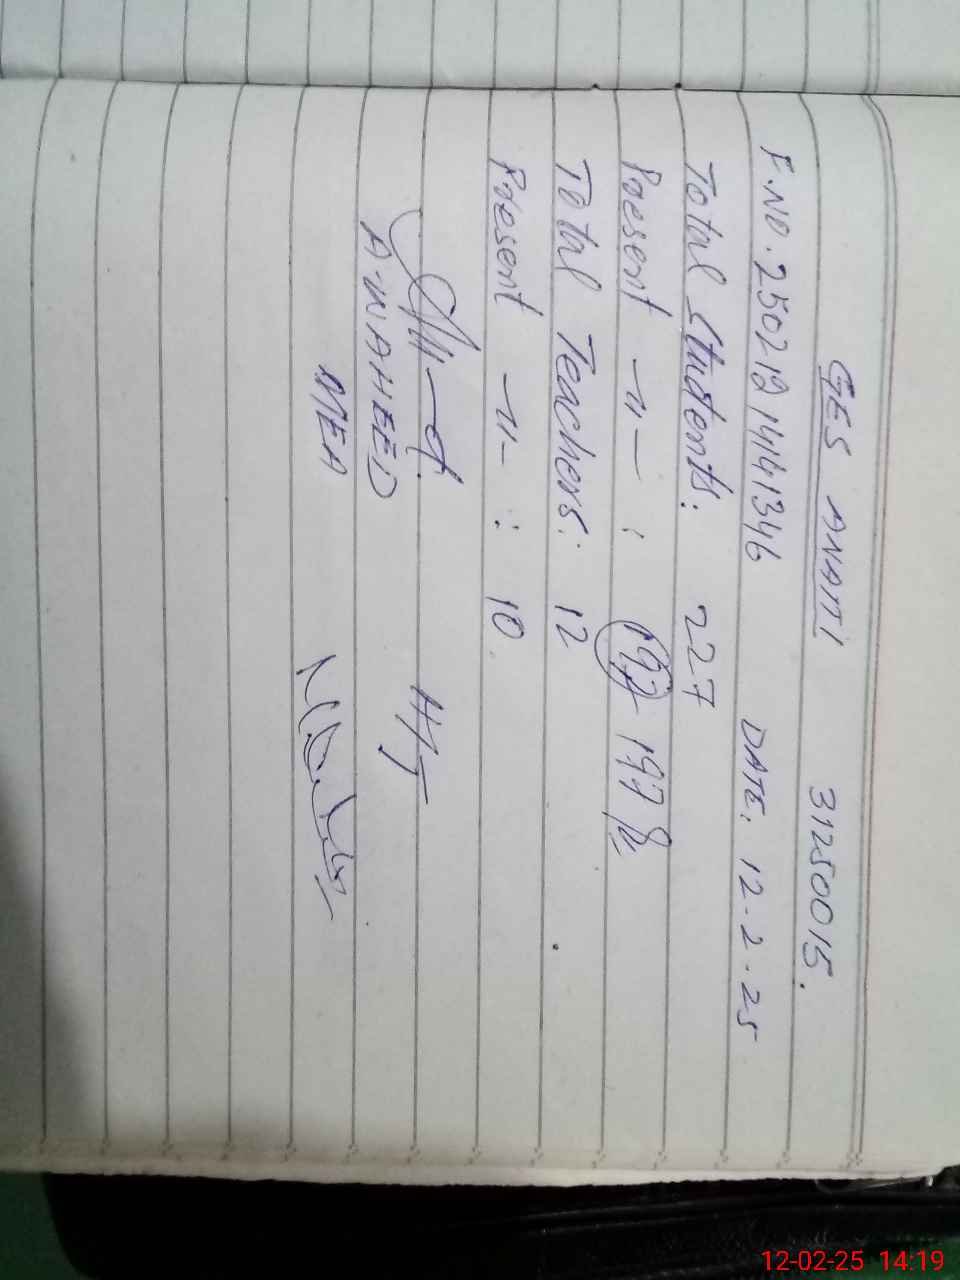 GES ANATTI 31250015.
F.NO. 250212141441346 DATE. 12-2-25
Total Students: 227
Present -〃- : 197 197
Total Teachers: 12
Present -〃- : 10.
H/T
A-WAHEED
MEA
12-02-25 14:19